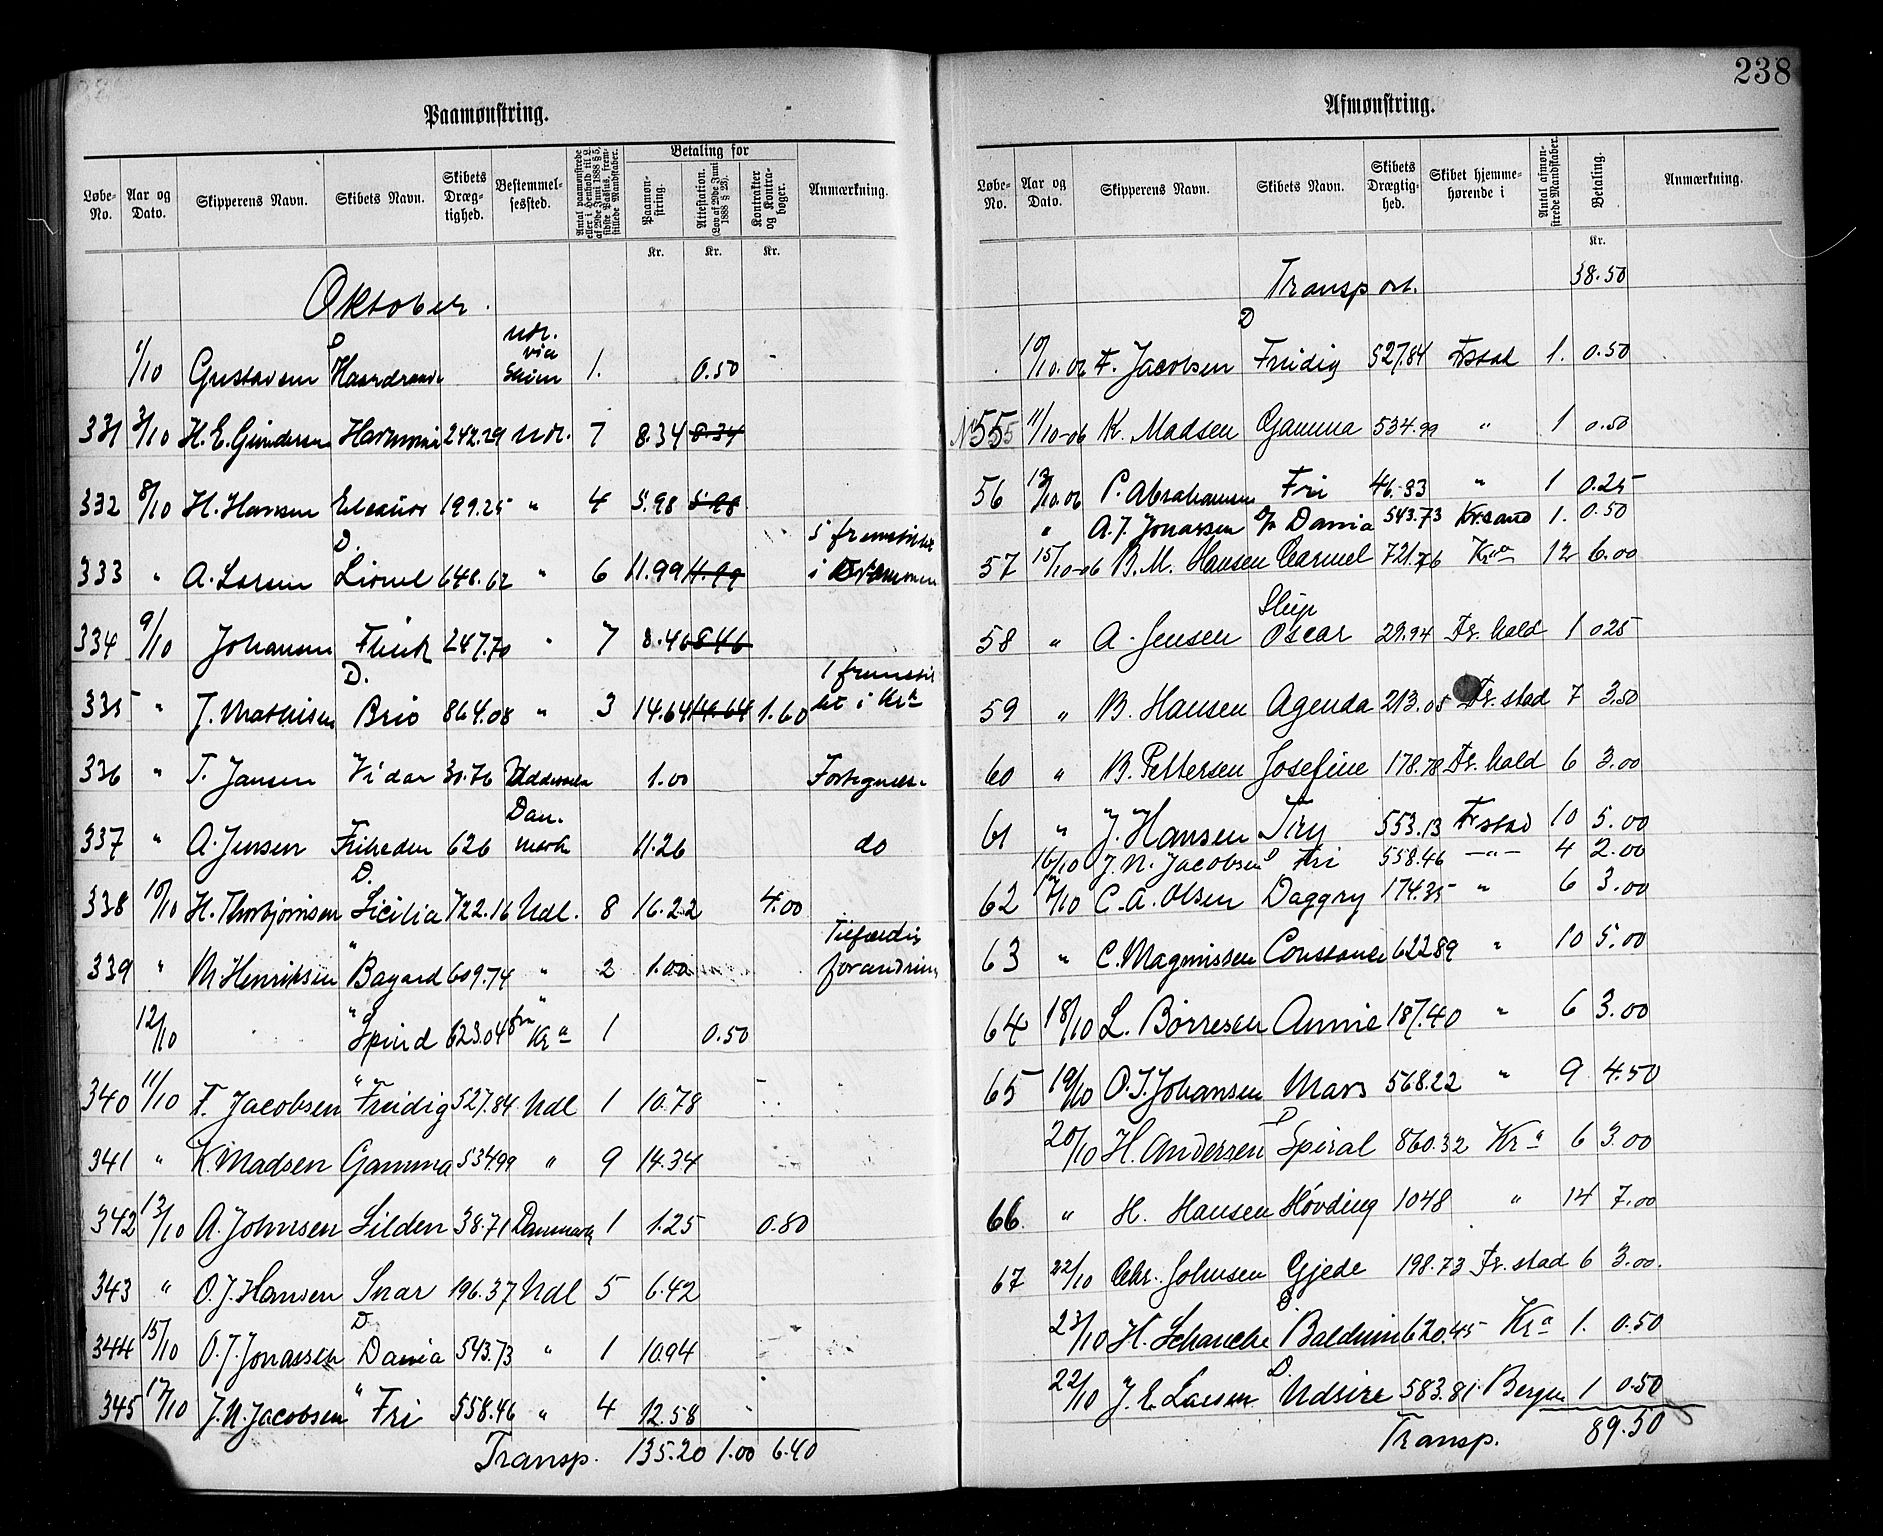 238
Paamønstring.
Løbe-No. Aar og Dato. Skipperens Navn. Skibets Navn. Skibets Dræg-tighed. Bestemmel-sessted. Antal paamønstrede eller i Henhold til L. af 29de Juni 1888 § 5, sidste Passus, frem-stillede Mandskaber. Betaling for Paamøn-string. Attestation. (Lov af 29de Juni 1888 § 28). Kontrakter og Kontra-bøger. Anmærkning.
Kr. Kr. Kr.
Oktober.
1/10 Gustavsen D Haardraade Udl. via Skien 1. 0.50
331 3/10 H. E. Gundersen Harmoni 242.29 Udl. 7 8.34 8.34
332 8/10 H. Hansen Eleanor 199.25 " 4 5.98 5.98
333 " A. Larsen D. Lionel 648.62 " 6 11.99 11.99 5 fremstillet i Drammen
334 9/10 Johansen Flink 247.70 " 7 8.46 8.46
335 " J. Mathisen D. Brio 864.08 " 3 14.64 14.64 1.60 1 fremstil let i Kra
336 " T. Jansen Vidar 30.76 Uddevalla 1.00 Fortegnels.
337 " A. Jensen Friheden 626 Dan. mark 11.26 do
338 10/10 H. Thorbjørnsen D. Sicilia 722.16 Udl. 8 16.22 4.00
339 " M Henriksen " Bayard 609.74 " 2 1.00 Tilfældig forandring
12/10 " Spind 623.04 fra Kra 1 0.50
340 11/10 F. Jacobsen " Freidig 527.84 Udl 1 10.78
341 " K. Madsen Gamma 534.99 " 9 14.34
342 13/10 A. Johnsen Silden 38.71 Danmark 1 1.25 0.80
343 " O. J. Hansen Snar 196.37 Udl 5 6.42
344 15/10 O. J. Jonassen D. Dania 543.73 " 1 10.94
345 17/10 J. N. Jacobsen " Fri 558.46 " 4 12.58
Transp. 135.20 1.00 6.40
Afmønstring.
Løbe-No. Aar og Dato. Skipperens Navn. Skibets Navn. Skibets Drægtig-hed. Skibet hjemme-hørende i Antal afmøn-strede Mandskaber. Betaling. Anmærkning.
Kr.
Transport. 38.50
10/10.06 F. Jacobsen D Freidig 527.84 Frstad 1. 0.50
No 555 11/10-06 K. Madsen Gamma 534.99 " 1 0.50
56 13/10.06 P. Abrahamsen Fri 46.33 " 1 0.25
" A. J. Jonassen D/s Dania 543.73 Kr.sand 1. 0.50
57 15/10-06 B. M. Hansen Carmel 721.76 Kra 12 6.00
58 " A. Jensen Slup Oscar 29.94 Fr. hald 1 025
59 " B. Hansen Agenda 213.05 Fr. stad 7 3.50
60 " B. Pettersen Josefine 178.78 Fr. hald 6 3.00
61 " J. Hansen Tiry 553.13 Frstad 10 5.00
16/10 J. N. Jacobsen D Fri 558.46 -"- 4 2.00
62 17/10 C. A. Olsen Daggry 174.35 " 6 3.00
63 " C. Magnussen Constance 622.89 " 10 5.00
64 18/10 L. Børresen Annie 187.40 " 6 3.00
65 19/10 O. T. Johansen Mars 568.22 " 9 4.50
20/10 H. Andersen D Spiral 860.32 Kra 6 3.00
66 " H. Hansen Høvding 1048 " 14 7.00
67 22/10 Chr. Johnsen Gjede 198.73 Fr. stad 6 3.00.
23/10 H. Schanche D. Baldrin 620.45 Kra 1. 0.50
22/10 J. E. Larsen D. Udsire 583.81 Bergen 1 0.50
Transp. 89.50